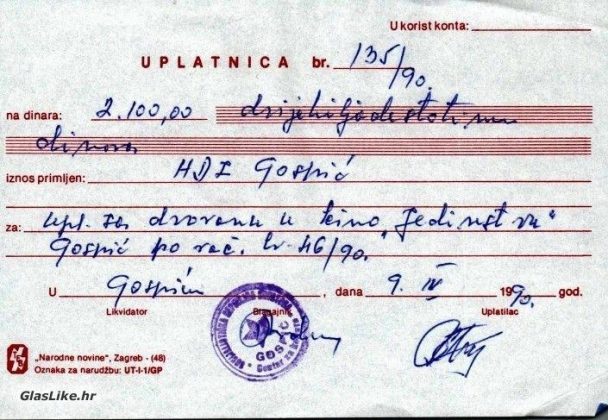 U korist konta:
UPLATNICA br. 135/90.
na dinara: 2.100,00 dvijehiljadestotinu
dinara
iznos primljen: HDZ Gospić
za: upl. za dvoranu u kino „Jedinstvu"
Gospić po rač. br. 46/90.
U Gospiću, dana 9. IV 1990. god.
Likvidator Blagajnik Uplatilac
GOSPIĆ
„Narodne novine", Zagreb - (48)
Oznaka za narudžbu: UT-I-1/GP
GlasLike.hr